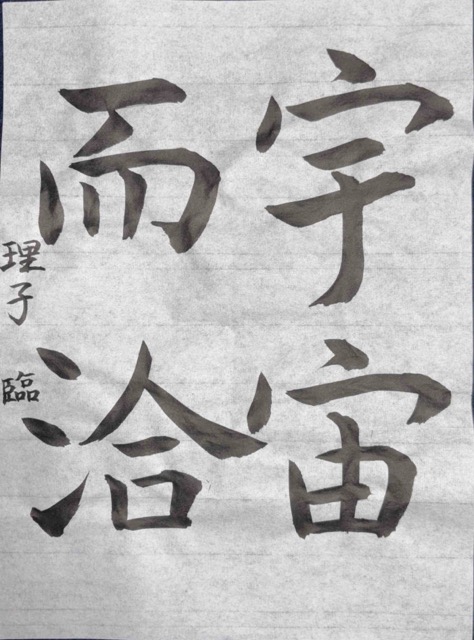 宇宙
而洽
理子 臨